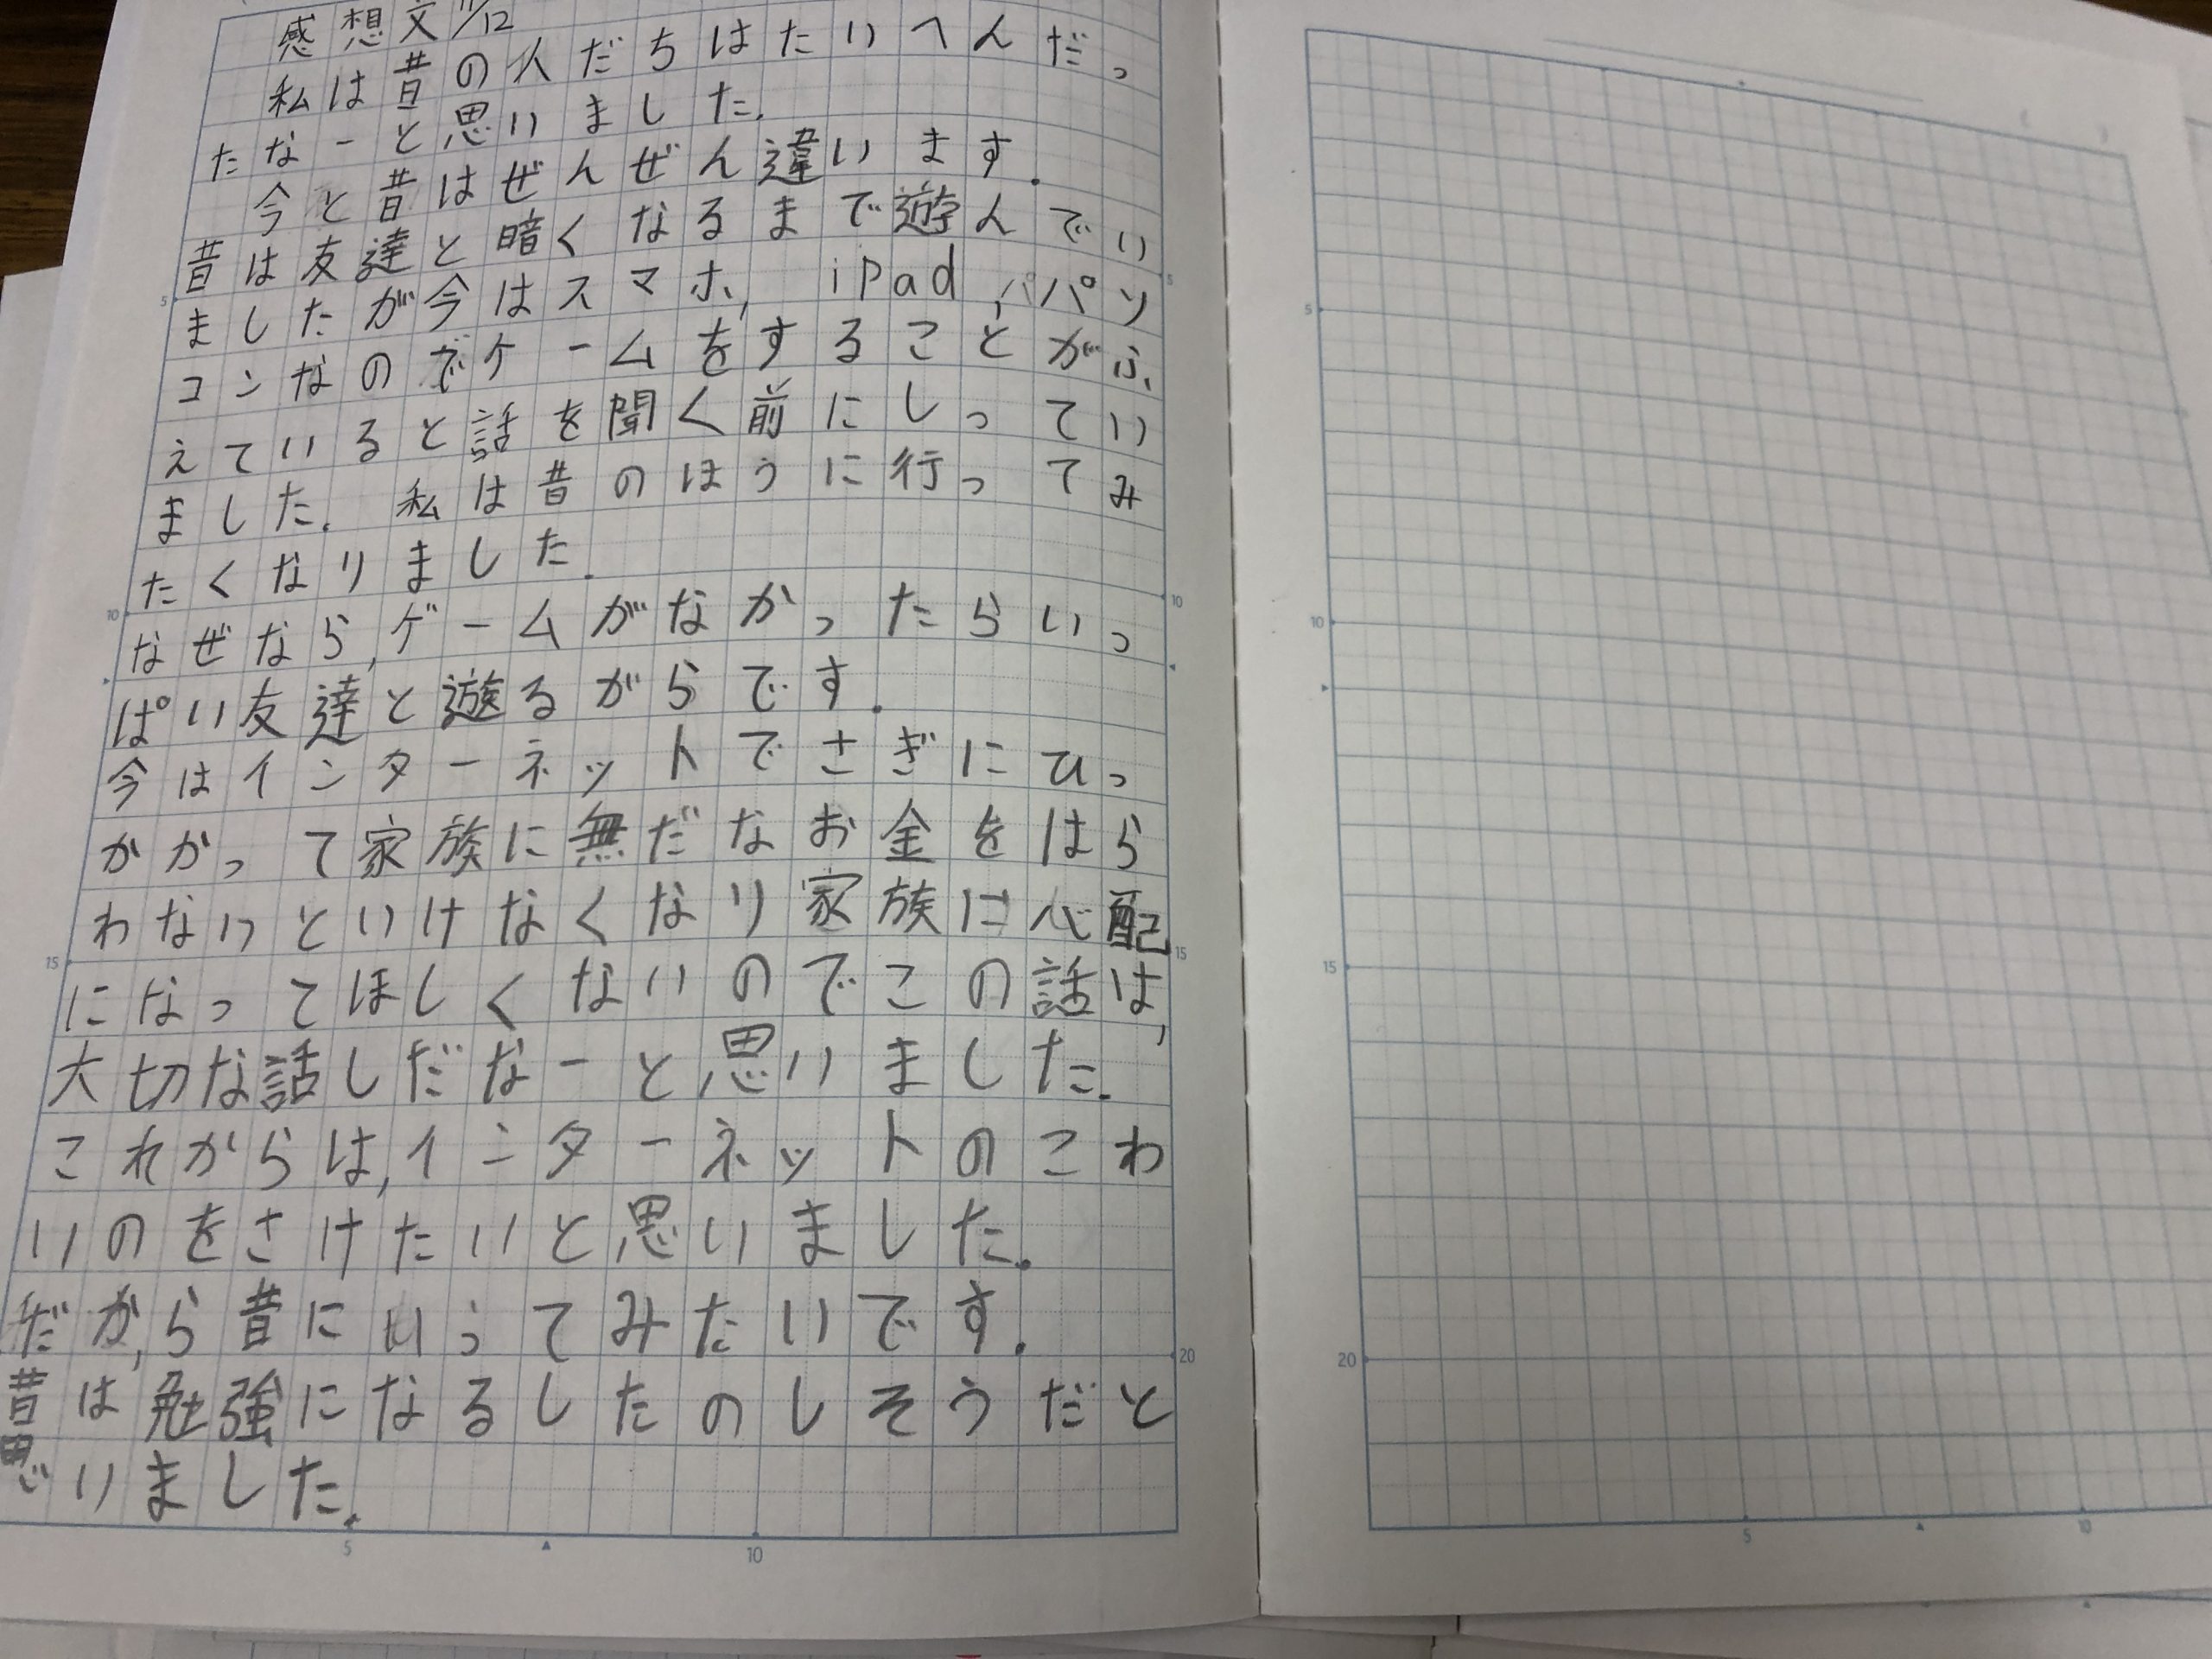 感想文 11/12
私は昔の人だちはたいへんだっ
たなーと思いました.
今と昔はぜんぜん違います.
昔は友達と暗くなるまで遊んでい
ましたが今はスマホ, iPad, パソ
コンなのでゲームをすることがふ
えていると話を聞く前にしってい
ました. 私は昔のほうに行ってみ
たくなりました.
なぜなら,ゲームがなかったらいっ
ぱい友達と遊るがらです.
今はインターネットでさぎにひっ
かかって家族に無だなお金をはら
わないといけなくなり家族に心配
になってほしくないのでこの話は,
大切な話しだなーと思いました.
これからは,インターネットのこわ
いのをさけたいと思いました.
だから昔にいってみたいです.
昔は勉強になるしたのしそうだと
思いました.
5
10
15
20
5
10
15
20
5
10
5
10
15
20
5
10